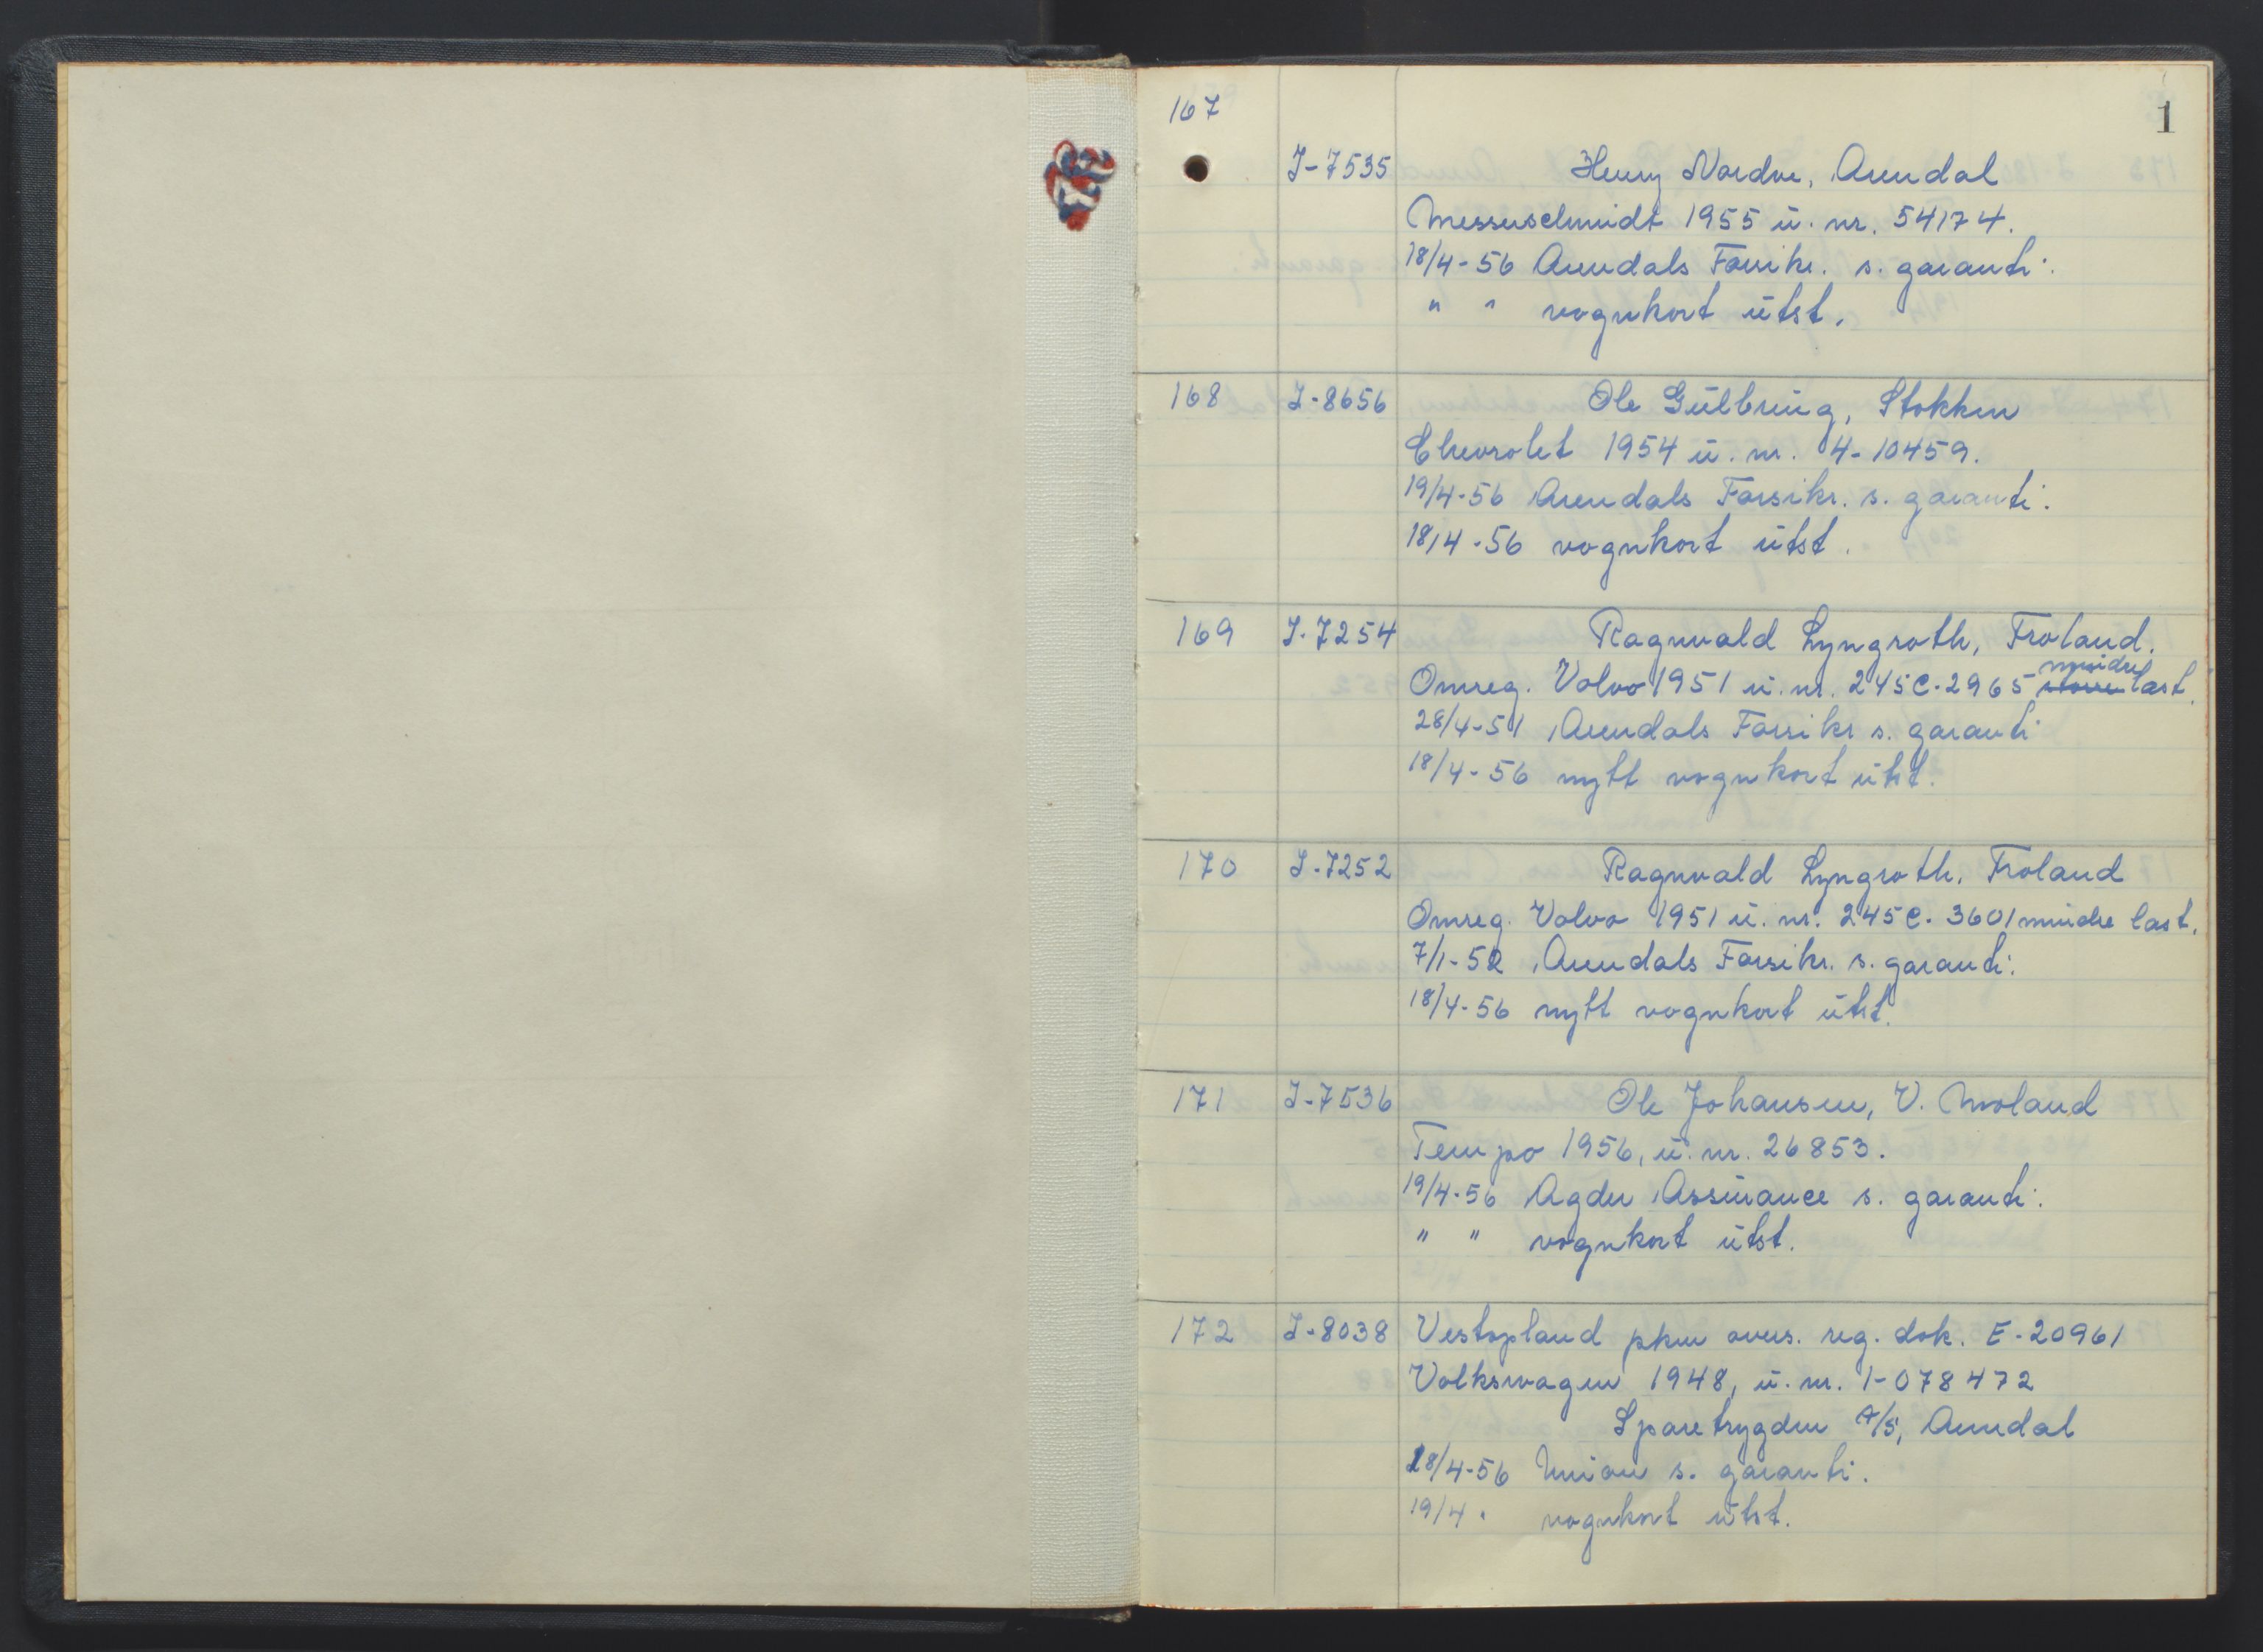 1
167
I-7535 Henry Nordve, Arendal
Messerschmidt 1955 u. nr. 54174.
18/4-56 Arendals Forsikr. s. garanti.
" " vognkort utst.
168 I-8656 Ole Gulbring, Stokken
Chevrolet 1954 u. nr. 4-10459.
19/4-56 Arendals Forsikr. s. garanti.
18/4-56 vognkort utst.
169 I-7254 Ragnvald Lyngroth, Froland.
mindre
Omreg. Volvo 1951 u. nr. 245C-2965 større last.
28/4-51 Arendals Forsikr s. garanti
18/4-56 nytt vognkort utst.
170 I-7252 Ragnvald Lyngroth, Froland
Omreg. Volvo 1951 u. nr. 245C-3601 mindre last.
7/1-52 Arendals Forsikr. s. garanti.
18/4-56 nytt vognkort utst.
171 I-7536 Ole Johansen, V. Moland
Tempo 1956, u. nr. 26853.
19/4-56 Agder Assurance s. garanti.
" " vognkort utst.
172 I-8038 Vestopland pkm overs. reg. dok. E-20961
Volkswagen 1948, u. nr. 1-078472
Sparetrygden A/S, Arendal
18/4-56 Union s. garanti.
19/4 " vognkort utst.